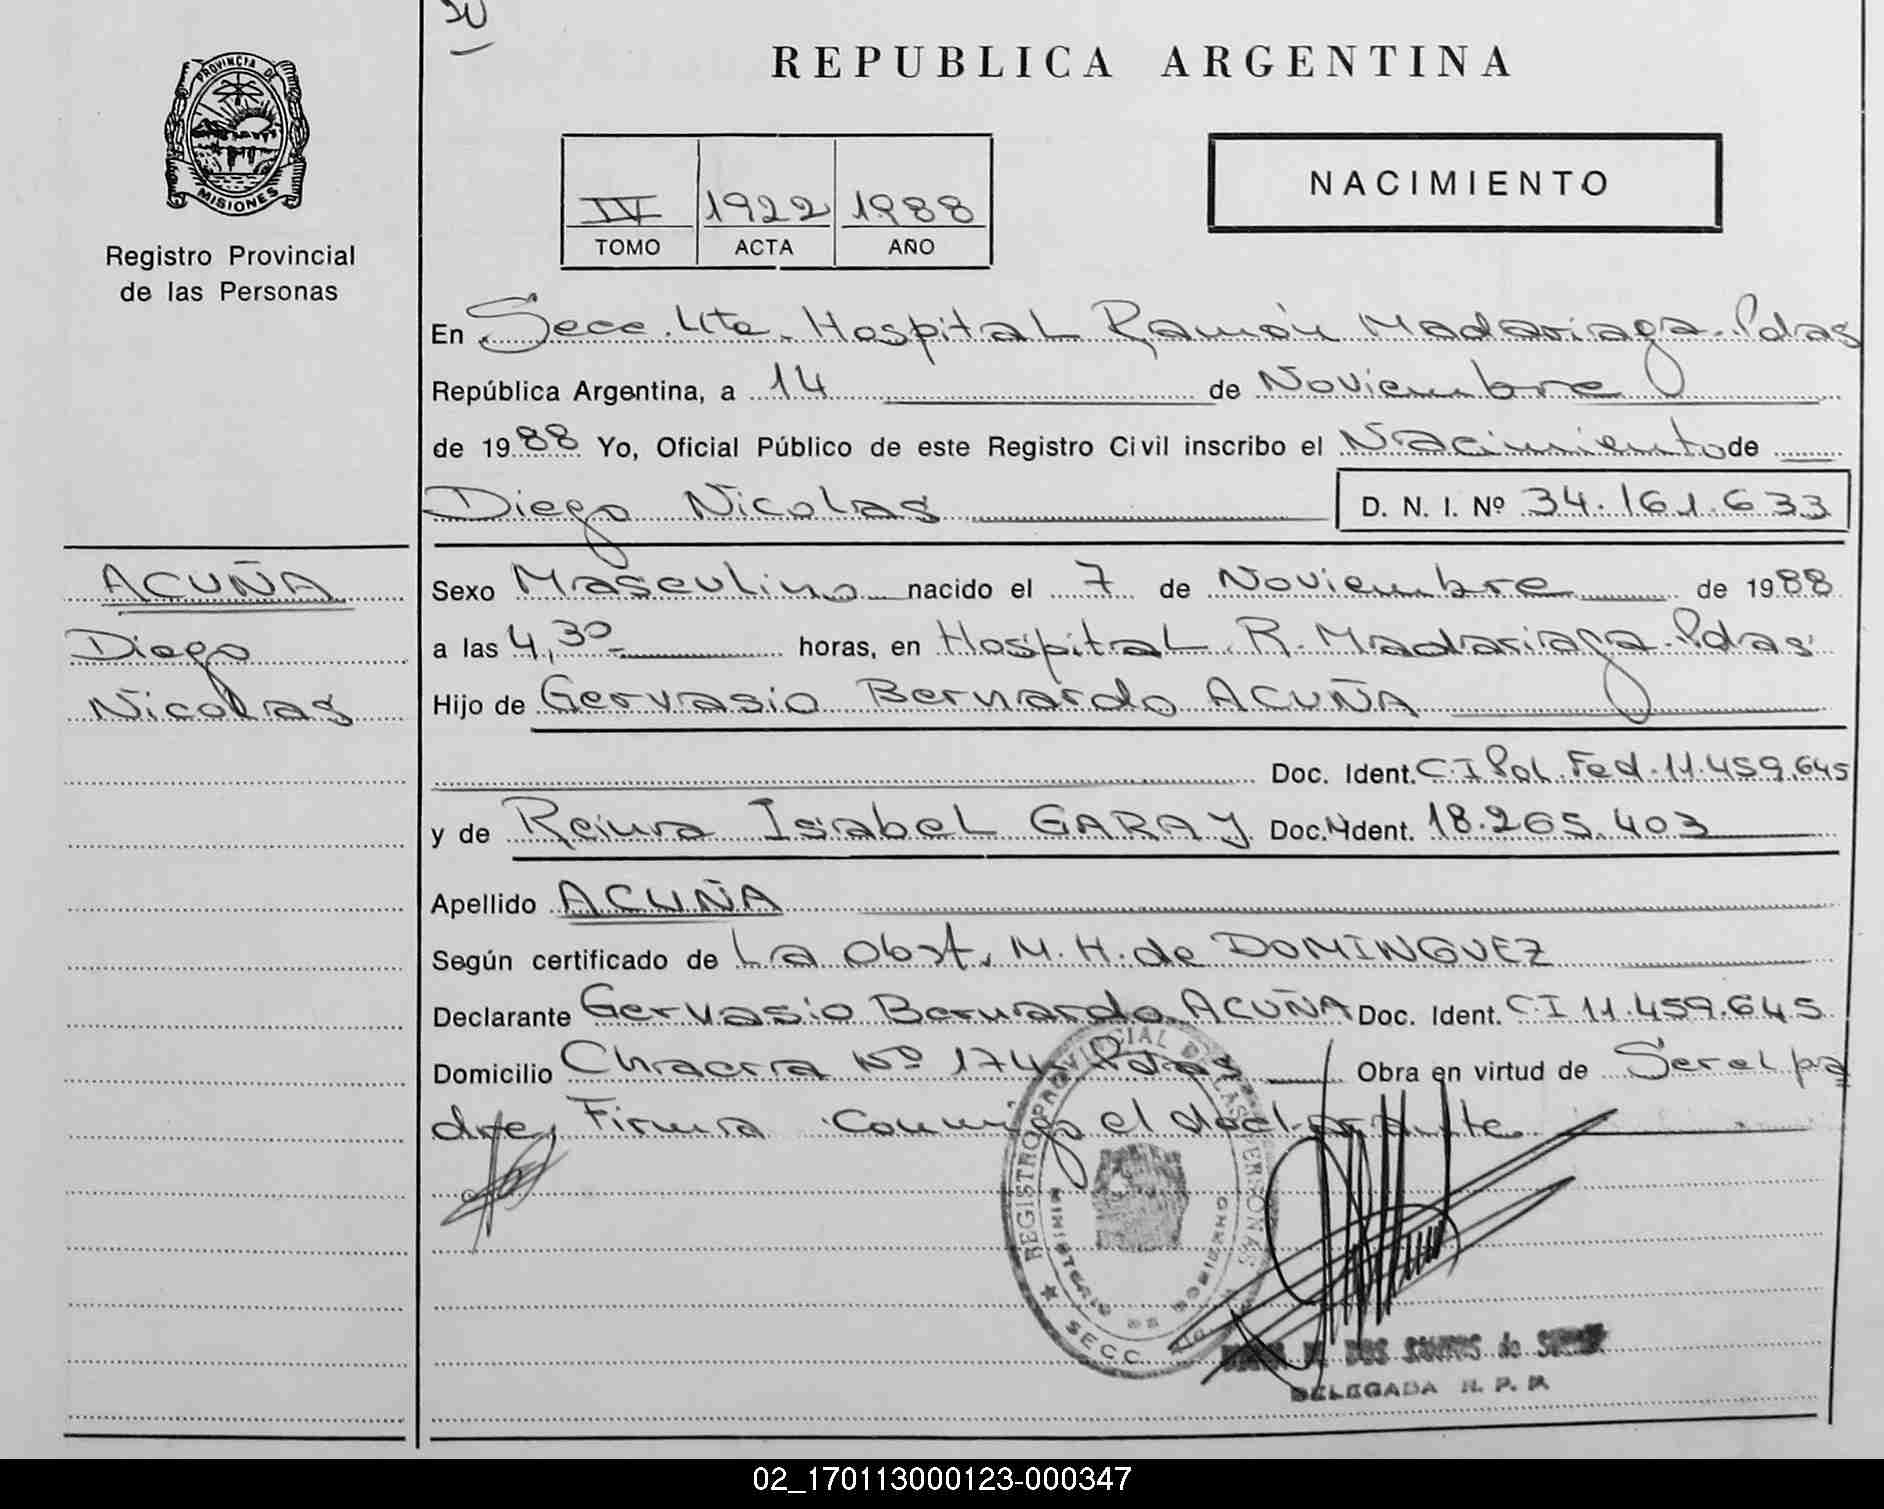 REPUBLICA ARGENTINA
PROVINCIA DE MISIONES
Registro Provincial
de las Personas
IV 1922 1988
TOMO ACTA AÑO
NACIMIENTO
En Secc. 4ta. Hospital Ramón Madariaga - Pdas
República Argentina, a 14 de Noviembre
de 1988 Yo, Oficial Público de este Registro Civil inscribo el Nacimiento de
Diego Nicolas D. N. I. Nº 34.161.633
ACUÑA
Diego
Nicolas
Sexo Masculino nacido el 7 de Noviembre de 1988
a las 4,30 horas, en Hospital R. Madariaga - Pdas
Hijo de Gervasio Bernardo ACUÑA
Doc. Ident. C.I Pol. Fed. 11.459.645
y de Reina Isabel GARAY Doc. Ident. 18.265.403
Apellido ACUÑA
Según certificado de La Obst. M. H. de DOMINGUEZ
Declarante Gervasio Bernardo ACUÑA Doc. Ident. C I 11.459.645
Domicilio Chacra Nº 174 Pdas Obra en virtud de Ser el pa
dre, Firma conmigo el declarante
REGISTRO PROVINCIAL DE LAS PERSONAS
MINISTERIO DE GOBIERNO
SECC. 4ta.
DOS SANTOS de
DELEGADA R. P. P.
02_170113000123-000347